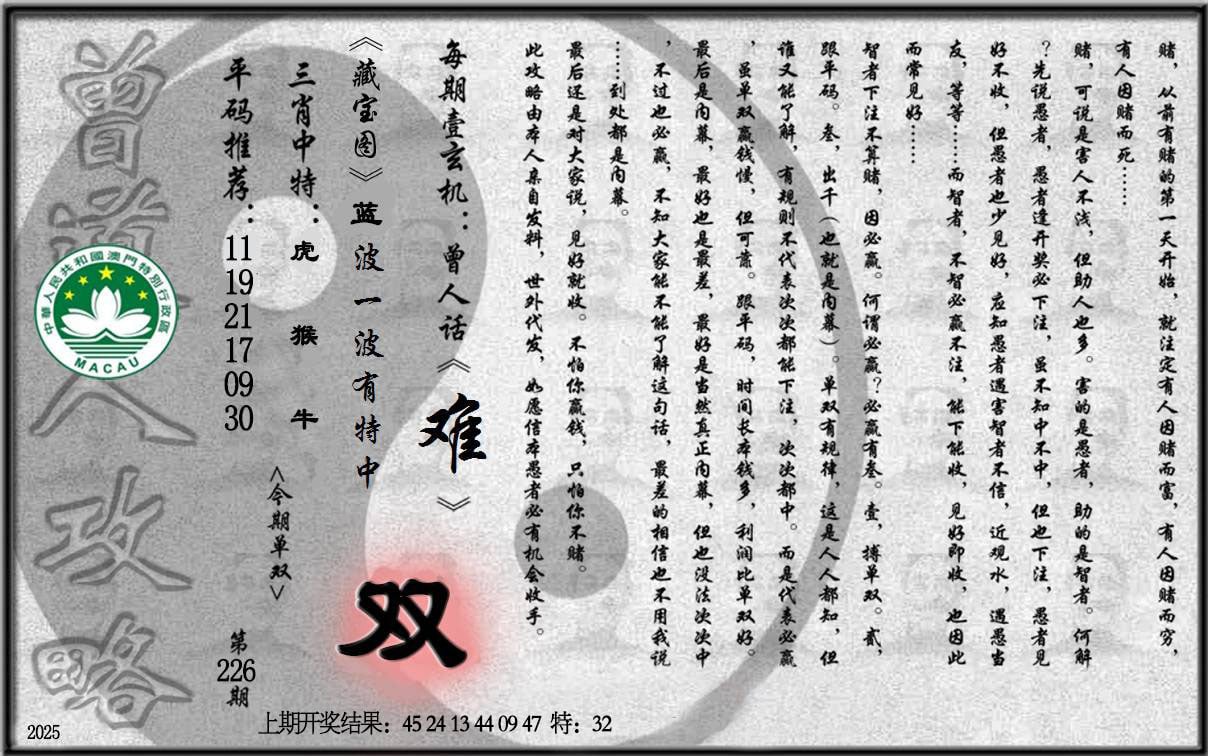 赌，从前有赌的第一天开始，就注定有人因赌而富，有人因赌而穷，
有人因赌而死……
赌，可说是害人不浅，但助人也多。害的是愚者，助的是智者。何解
？先说愚者，愚者逢开奖必下注，虽不知中不中，但也下注，愚者见
好不收，但愚者也少见好，应知愚者遇害智者不信，近观水，遇愚当
友，等等……而智者，不智必赢不注，能下能收，见好即收，也因此
而常见好……
智者下注不算赌，因必赢。何谓必赢？必赢有叁。壹，搏单双。贰，
跟平码。叁，出千（也就是内幕）。单双有规律，这是人人都知，但
谁又能了解，有规则不代表次次都能下注，次次都中。而是代表必赢
，虽单双赢钱慢，但可靠。跟平码，时间长本钱多，利润比单双好。
最后是内幕，最好也是最差，最好是当然真正内幕，但也没法次次中
，不过也必赢，不知大家能不能了解这句话，最差的相信也不用我说
……到处都是内幕。
最后还是对大家说，见好就收。不怕你赢钱，只怕你不赌。
此攻略由本人亲自发料，世外代发，如愿信本愚者必有机会收手。
每期壹玄机：曾人话《难》
《藏宝图》蓝波一波有特中
双
三肖中特：虎 猴 牛
<今期单双>
平码推荐：11 19 21 17 09 30
第226期
曾道人攻略
中華人民共和國澳門特別行政區
MACAU
上期开奖结果：45 24 13 44 09 47 特：32
2025